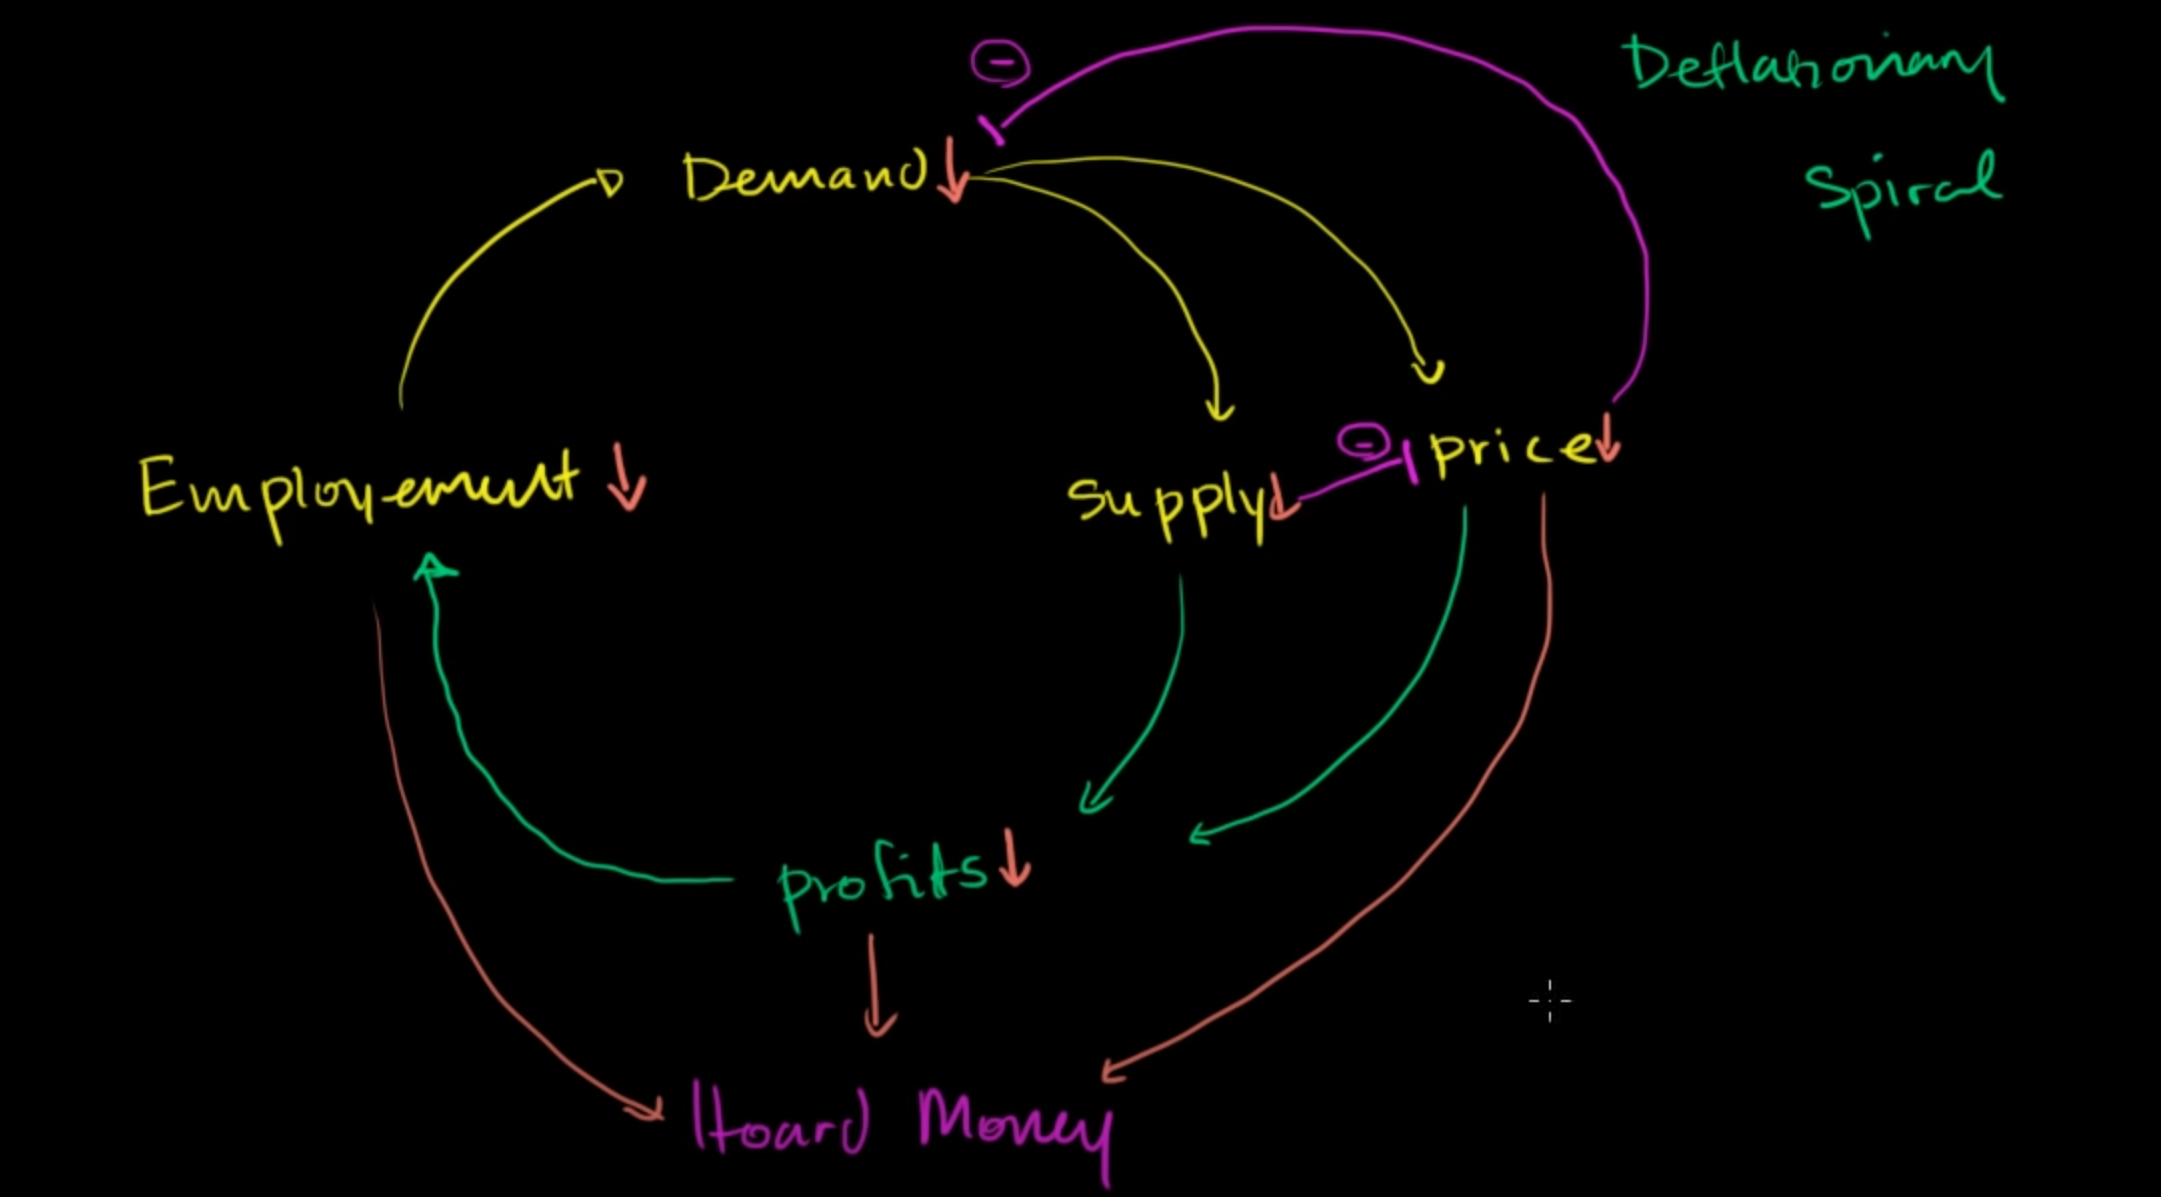 Deflationary
Spiral
Demand
Employement
supply
price
profits
Hoard Money